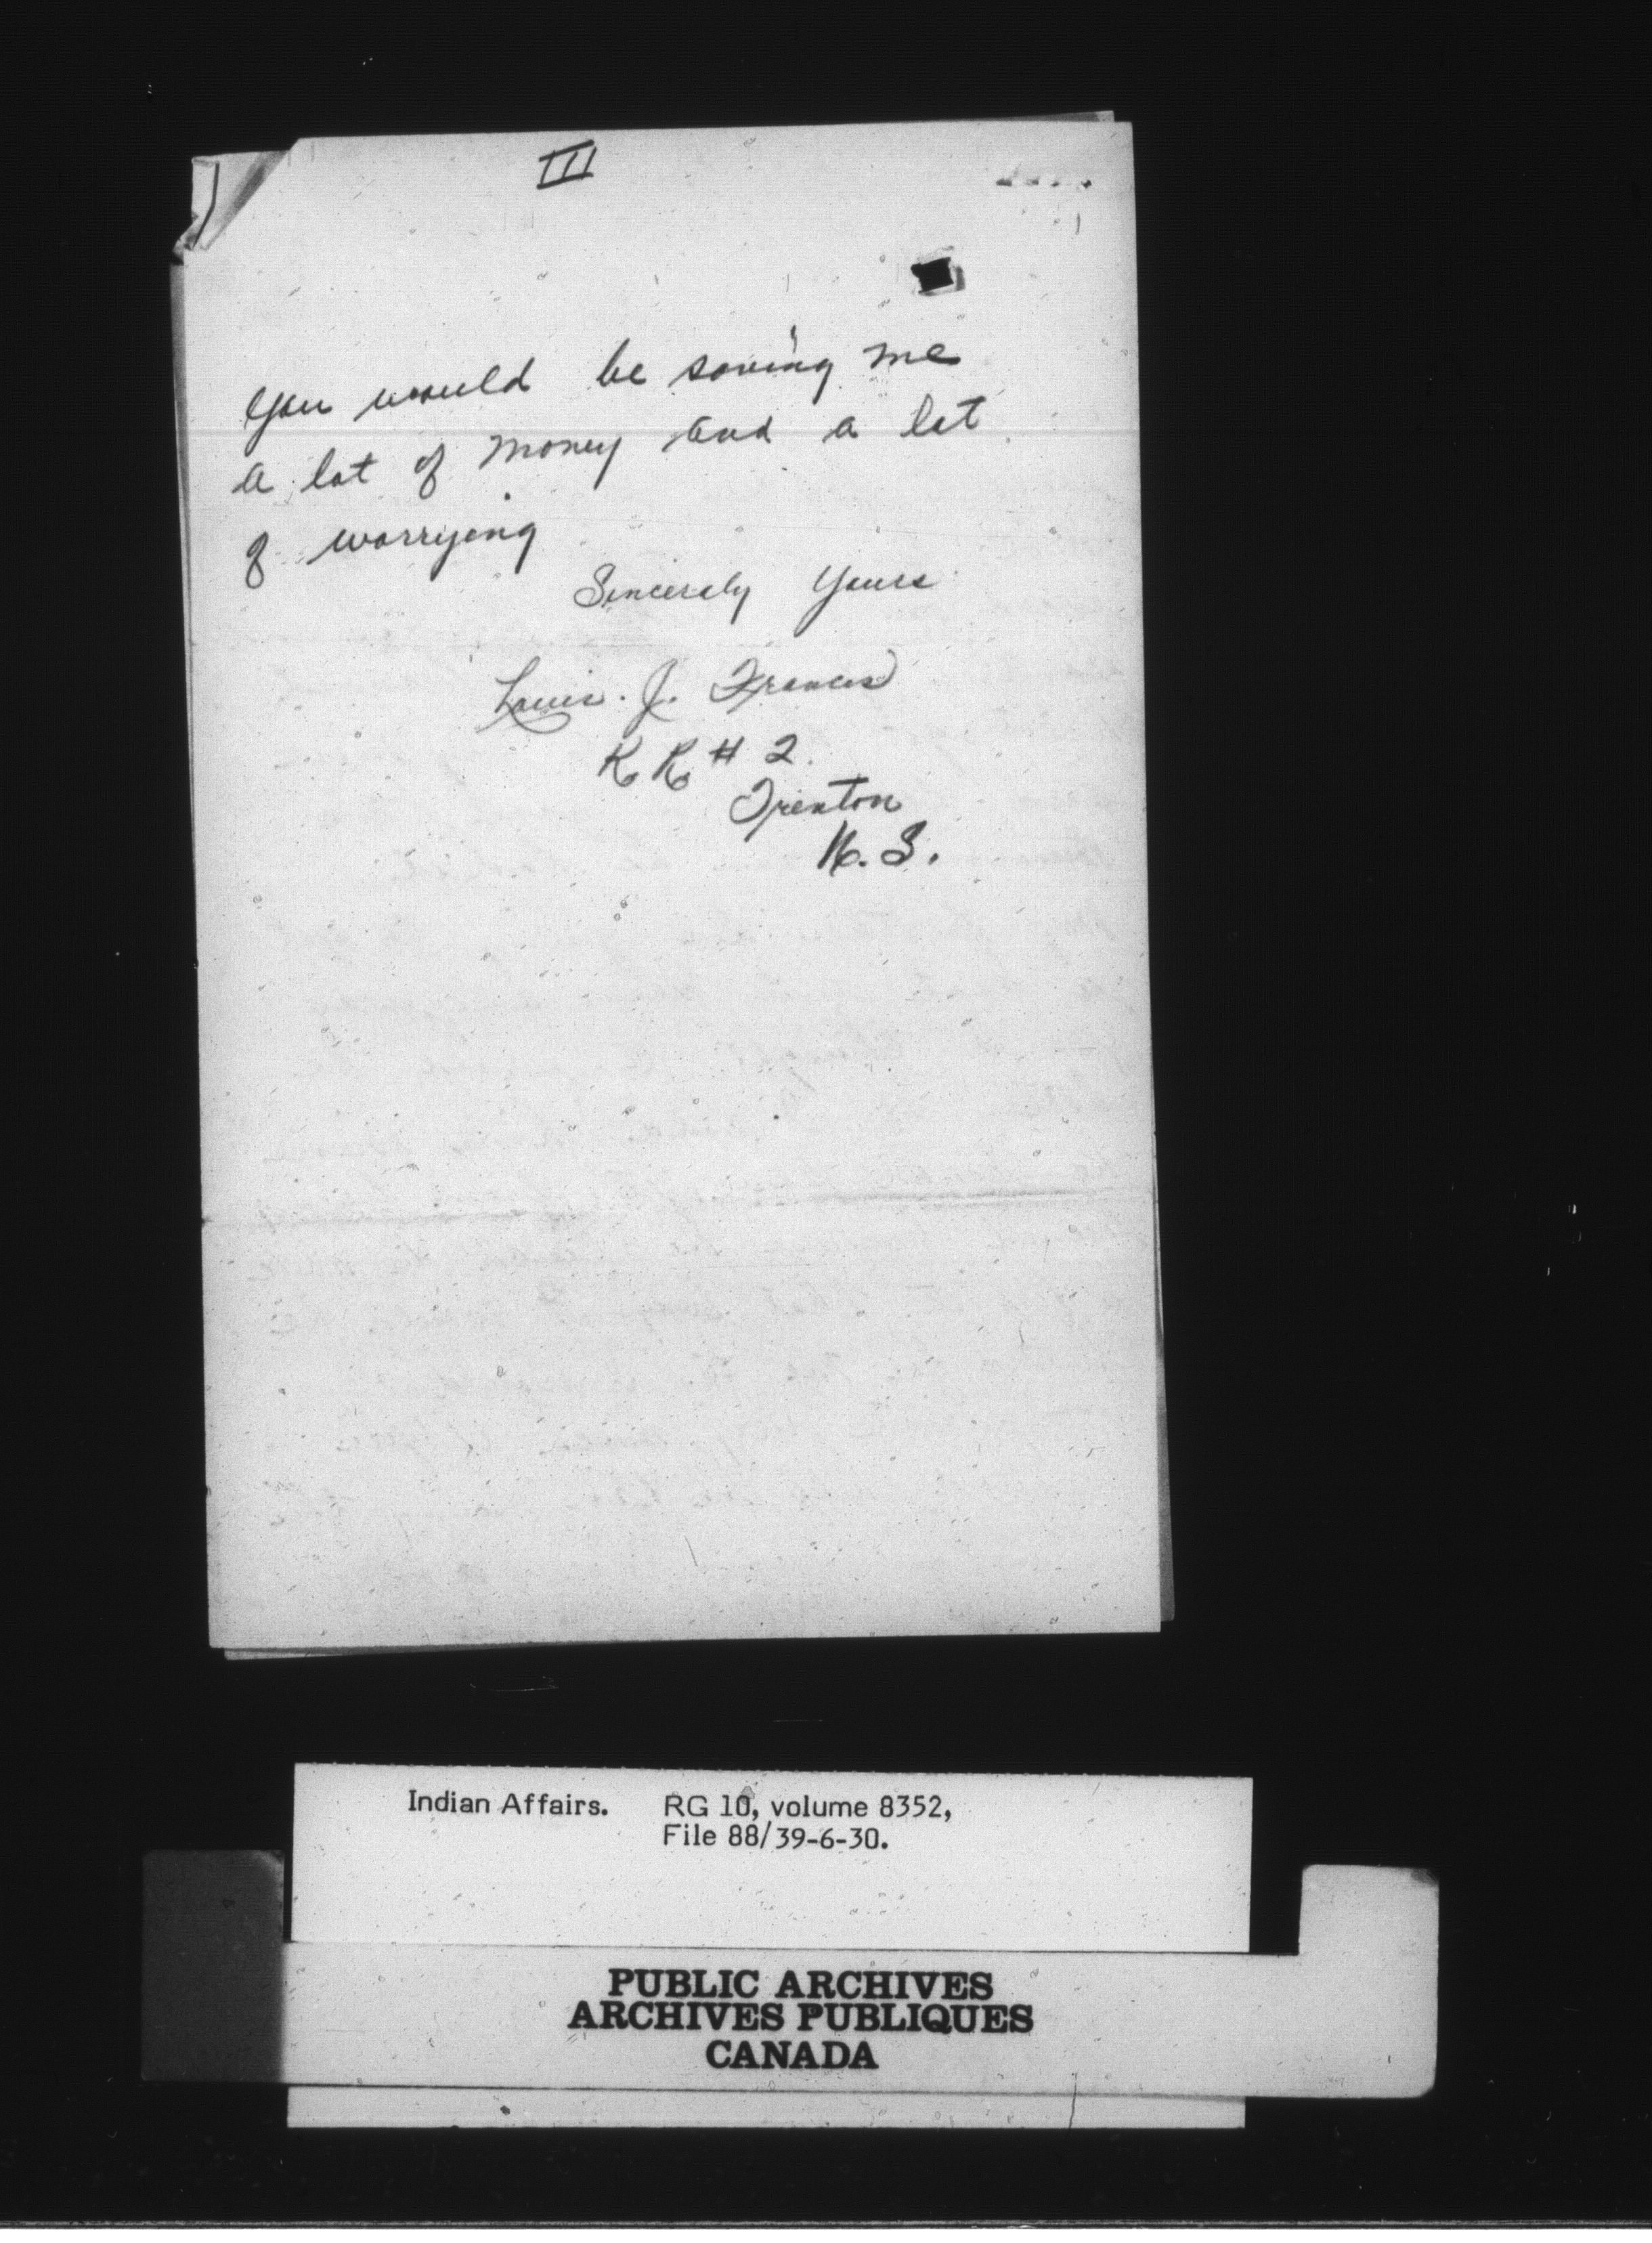 III
You would be saving me
a lot of money and a lot
of worrying
Sincerely Yours
Louis. J. Francis
R R # 2.
Trenton
N. S.
Indian Affairs. RG 10, volume 8352,
File 88/39-6-30.
PUBLIC ARCHIVES
ARCHIVES PUBLIQUES
CANADA